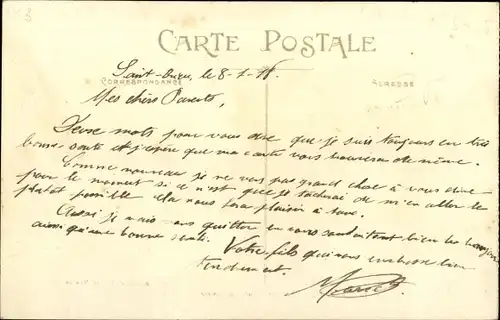 CARTE POSTALE
Saint-Ouen, le 8-1-18
CORRESPONDANCE
ADRESSE
Mes chers Parents,
Deux mots pour vous dire que je suis toujours en très
bonne santé et j'espère que ma carte vous trouvera de même.
Comme nouveau je ne vois pas grand chose à vous dire
pour le moment si ce n'est que je tacherai de m'en aller le
plutôt possible cela nous fera plaisir à tous.
Aussi je vais vous quitter en vous souhaitant bien le bonjour
ainsi qu'une bonne santé.
Votre fils qui vous embrasse bien
tendrement.
Marcel